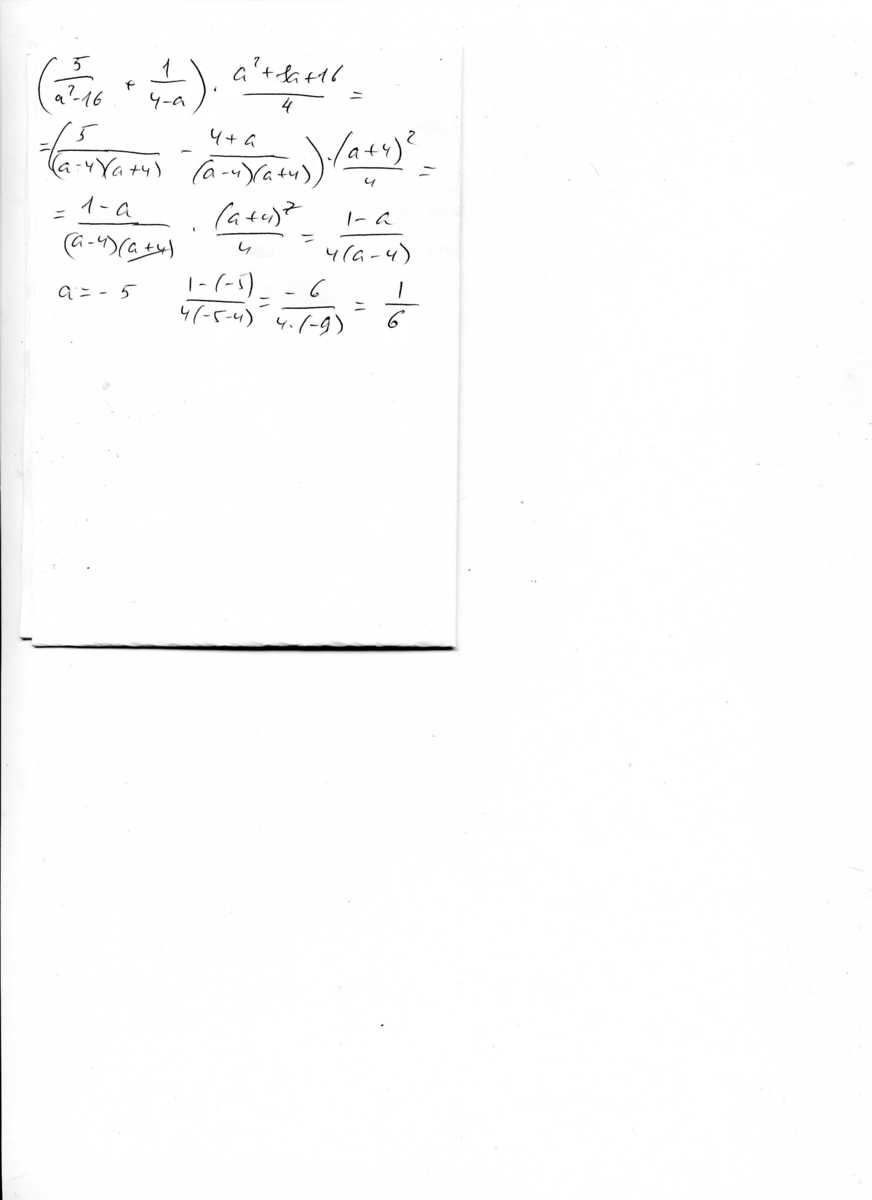 (5/(a²-16) + 1/(4-a)) · (a²+8a+16)/4 =
= (5/((a-4)(a+4)) - (4+a)/((a-4)(a+4))) · (a+4)²/4 =
= (1-a)/((a-4)(a+4)) · (a+4)²/4 = (1-a)/(4(a-4))
a = -5 (1-(-5))/(4(-5-4)) = -6/(4·(-9)) = 1/6